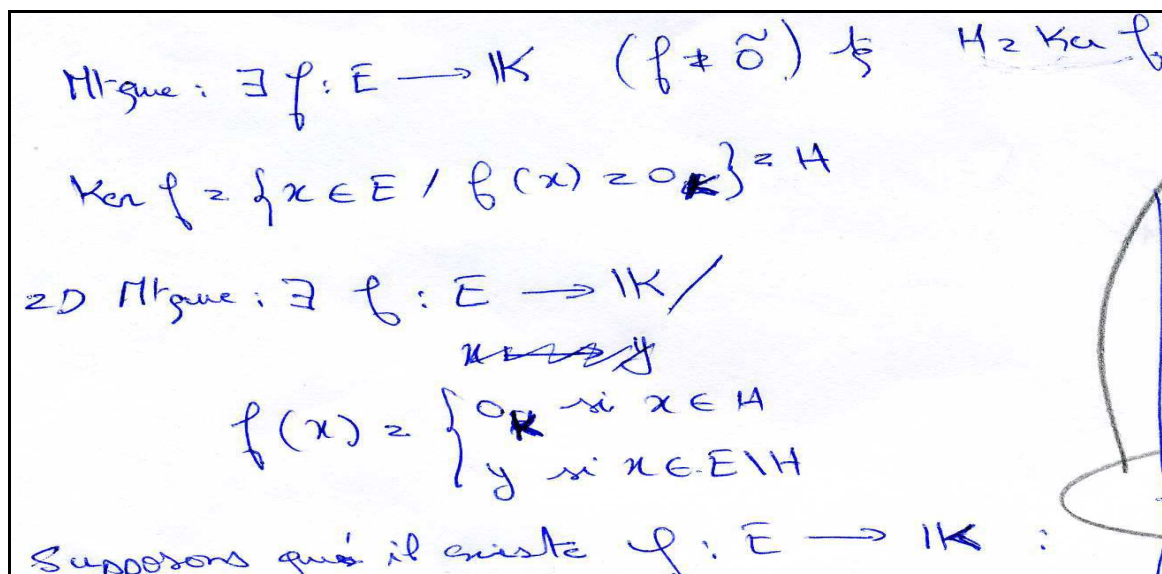 Mt que : ∃ f : E → 𝕂 (f ≠ õ) tq H = Ker f
Ker f = {x ∈ E / f(x) = 0𝕂} = H
=D Mt que : ∃ f : E → 𝕂 /
f(x) = { 0𝕂 si x ∈ H
y si x ∈ E \ H
Supposons qu'il existe f : E → 𝕂 :